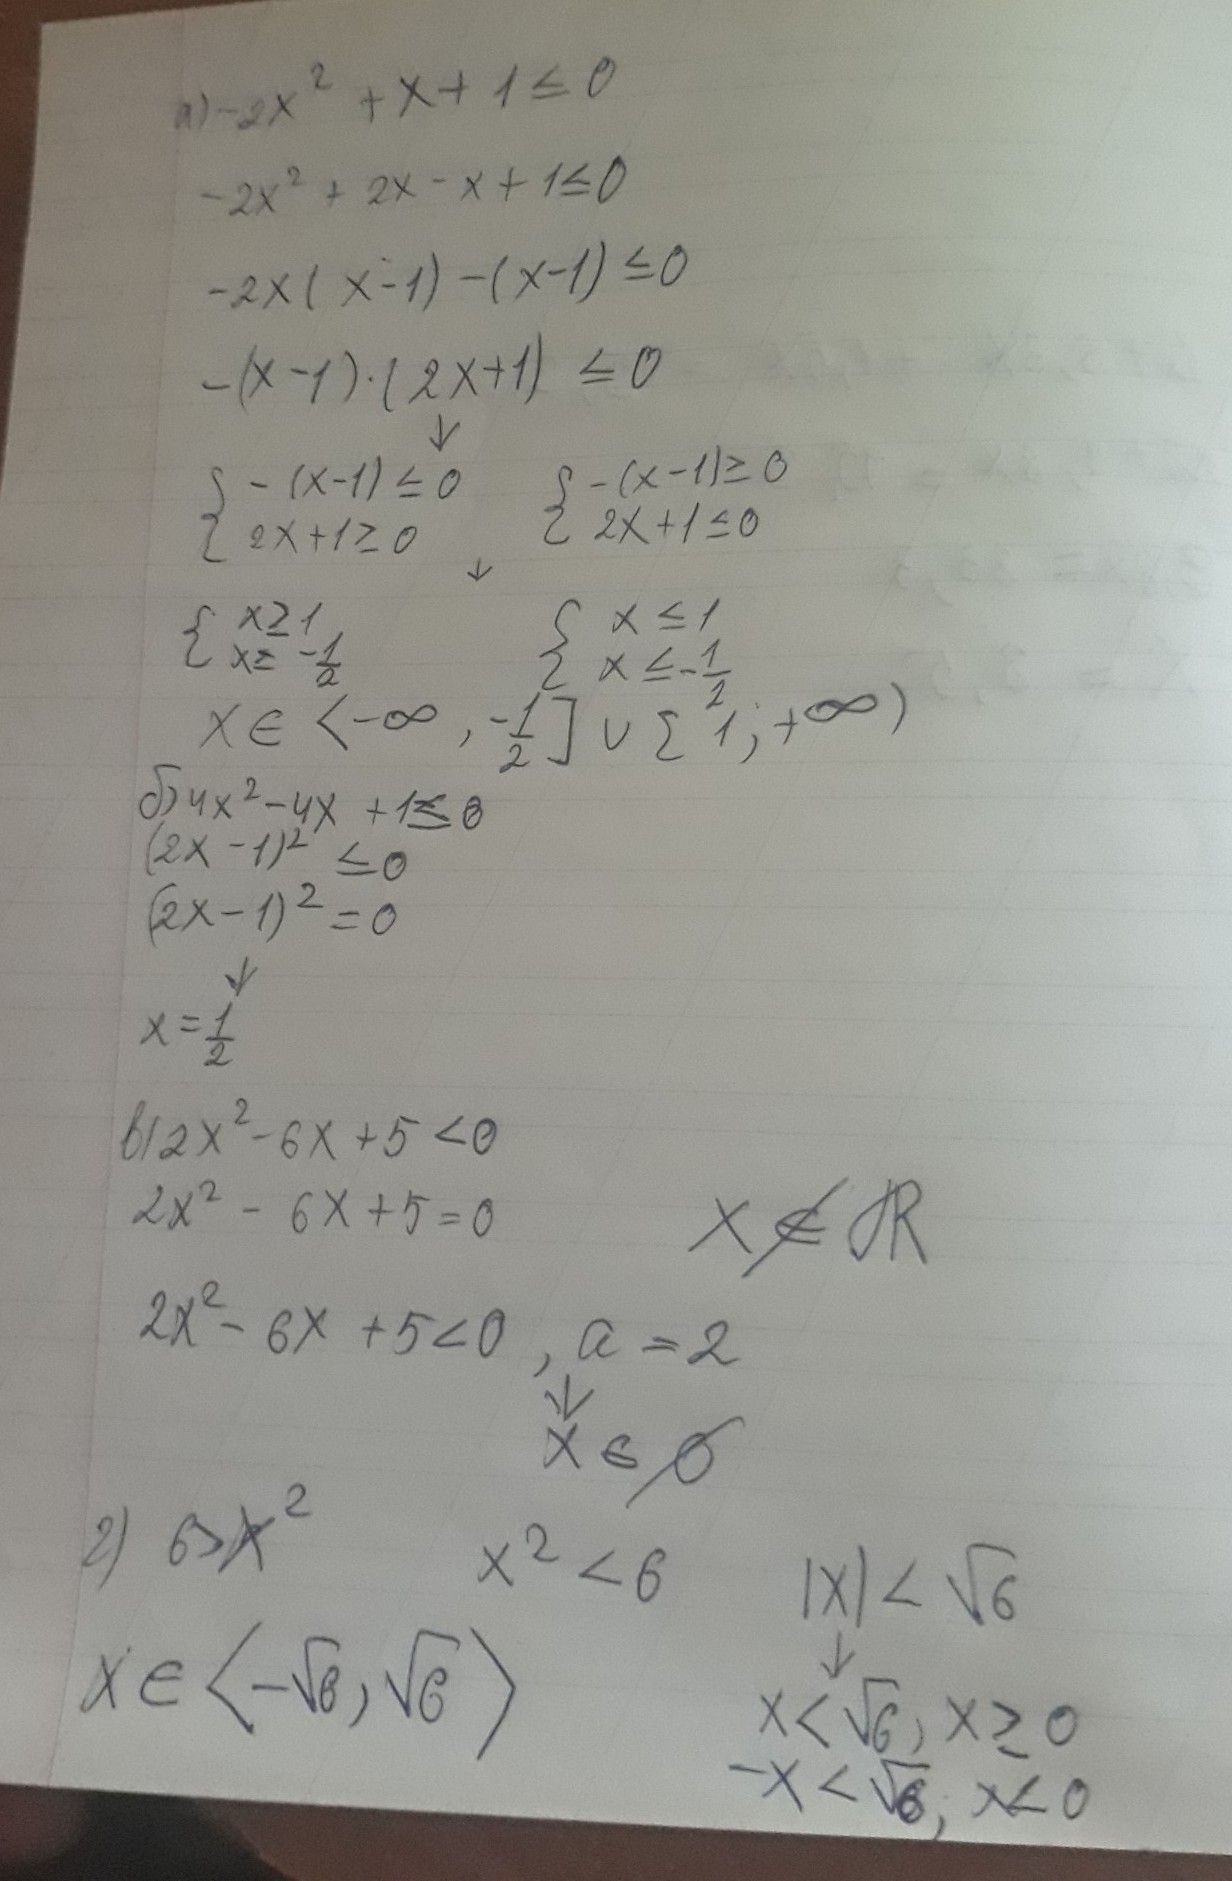 а) -2x² + x + 1 ≤ 0
-2x² + 2x - x + 1 ≤ 0
-2x(x-1) - (x-1) ≤ 0
-(x-1)·(2x+1) ≤ 0
↓
{ -(x-1) ≤ 0 { -(x-1) ≥ 0
{ 2x+1 ≥ 0 { 2x+1 ≤ 0
↓
{ x ≥ 1 { x ≤ 1
{ x ≥ -1/2 { x ≤ -1/2
x ∈ ⟨-∞, -1/2] ∪ [1; +∞)
б) 4x² - 4x + 1 ≤ 0
(2x - 1)² ≤ 0
(2x - 1)² = 0
↓
x = 1/2
в) 2x² - 6x + 5 < 0
2x² - 6x + 5 = 0 x ∉ ℝ
2x² - 6x + 5 < 0, a = 2
↓
x ∈ ∅
г) 6 > x² x² < 6 |x| < √6
↓
x ∈ ⟨-√6, √6⟩ x < √6, x ≥ 0
-x < √6, x < 0